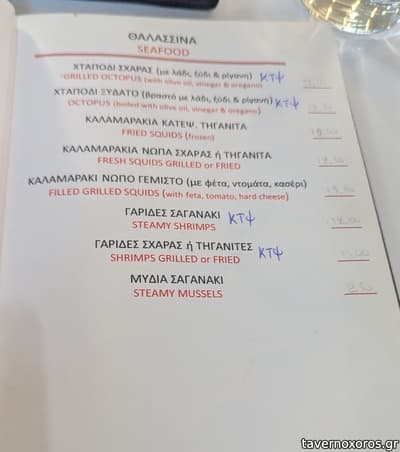 ΘΑΛΑΣΣΙΝΑ
SEAFOOD
ΧΤΑΠΟΔΙ ΣΧΑΡΑΣ (με λάδι, ξύδι & ρίγανη) ΚΤΨ
GRILLED OCTOPUS (with olive oil, vinegar & oregano)
ΧΤΑΠΟΔΙ ΞΥΔΑΤΟ (βραστό με λάδι, ξύδι & ρίγανη) ΚΤΨ
OCTOPUS (boiled with olive oil, vinegar & oregano)
ΚΑΛΑΜΑΡΑΚΙΑ ΚΑΤΕΨ. ΤΗΓΑΝΙΤΑ
FRIED SQUIDS (frozen)
ΚΑΛΑΜΑΡΑΚΙΑ ΝΩΠΑ ΣΧΑΡΑΣ ή ΤΗΓΑΝΙΤΑ
FRESH SQUIDS GRILLED or FRIED
ΚΑΛΑΜΑΡΑΚΙ ΝΩΠΟ ΓΕΜΙΣΤΟ (με φέτα, ντομάτα, κασέρι)
FILLED GRILLED SQUIDS (with feta, tomato, hard cheese)
ΓΑΡΙΔΕΣ ΣΑΓΑΝΑΚΙ ΚΤΨ
STEAMY SHRIMPS
ΓΑΡΙΔΕΣ ΣΧΑΡΑΣ ή ΤΗΓΑΝΙΤΕΣ ΚΤΨ
SHRIMPS GRILLED or FRIED
ΜΥΔΙΑ ΣΑΓΑΝΑΚΙ
STEAMY MUSSELS
tavernoxoros.gr